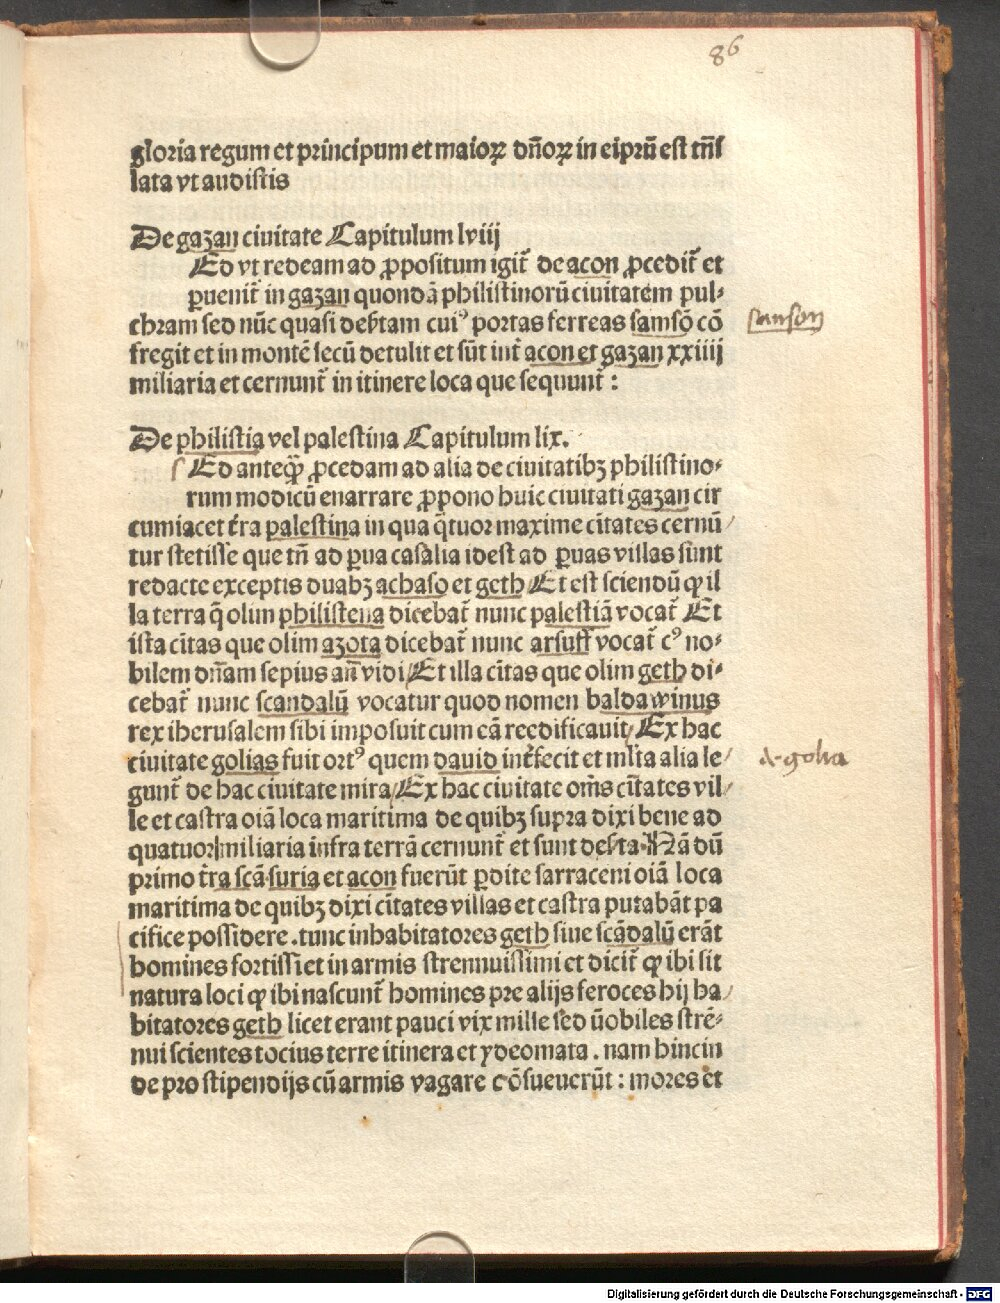 86
gloria regum et principum et maioꝝ dn̄oꝝ in eiprū est trāſ
lata vt audistis
De gazan ciuitate Capitulum lviij
Ed vt redeam ad ꝓpositum igit̄ de acon ꝓcedit̄ et
ꝑuenit̄ in gazan quondā philistinorū ciuitatem pul⸗
chram sed nūc quasi deẜtam cuiꝰ portas ferreas samsō cō
fregit et in montē secū detulit et sūt int̄ acon et gazan xxiiij
miliaria et cernunt̄ in itinere loca que sequunt̄ :
sanson
De philistia vel palestina Capitulum lix.
s Ed anteqꝫ̄ ꝓcedam ad alia de ciuitatibꝫ philistino⸗
rum modicū enarrare ꝓpono huic ciuitati gazan cir
cumiacet t̄ra palestina in qua q̄tuor maxime cītates cernū/
tur stetisse que tn̄ ad ꝑua casalia idest ad ꝑuas villas sunt
redacte exceptis duabꝫ achaso et geth Et est sciendū ꝙ il
la terra q̄ olim philistena dicebat̄ nunc palestiā vocat̄ Et
ista cītas que olim azota dicebat̄ nunc arsuff vocat̄ cꝰ no⸗
bilem dn̄am sepius an̄ vidi/Et illa cītas que olim geth di⸗
cebat̄ nunc scandalū vocatur quod nomen baldawinus
rex iherusalem sibi imposuit cum eā reedificauit/Ex hac
ciuitate golias fuit ortꝰ quem dauid int̄fecit et ml̄ta alia le/
gunt̄ de hac ciuitate mira/Ex hac ciuitate om̄s cītates vil/
le et castra oīā loca maritima de quibꝫ supra dixi bene ad
quatuor miliaria infra terrā cernunt̄ et sunt deẜta. Nā dū
primo t̄ra scā suria et acon fuerūt ꝑdite sarraceni oīā loca
maritima de quibꝫ dixi cītates villas et castra putabāt pa
cifice possidere . tunc inhabitatores geth siue scādalū erāt
homines fortissi et in armis strennuissimi et dicit̄ ꝙ ibi sit
natura loci ꝙ ibi nascunt̄ homines pre alijs feroces hij ha/
bitatores geth licet erant pauci vix mille sed ūobiles strē⸗
nui scientes tocius terre itinera et ydeomata . nam hincin
de pro stipendijs cū armis vagare cōsueuerūt : mores et
A. golia
Digitalisierung gefördert durch die Deutsche Forschungsgemeinschaft - DFG